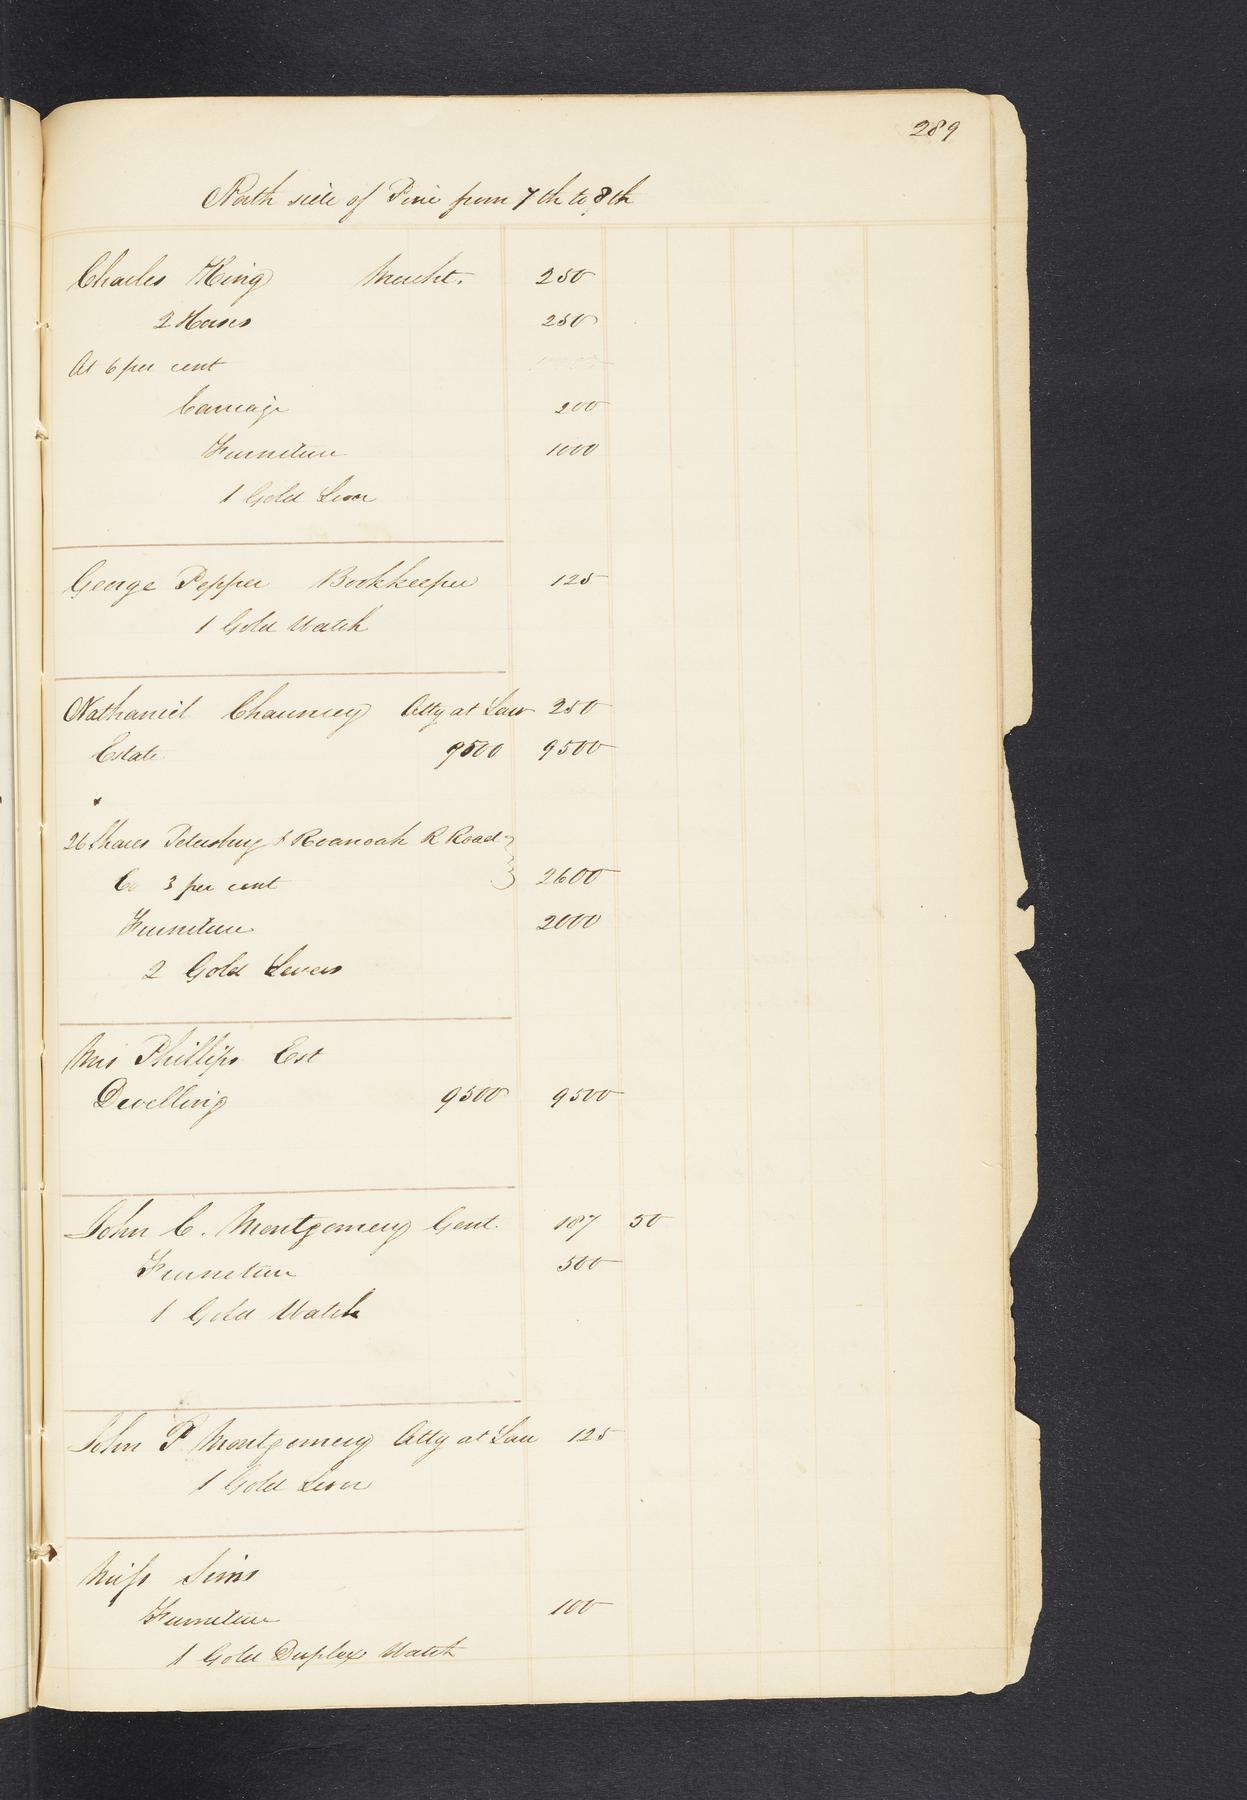 289
North side of Pine from 7th to 8th
Charles King Mercht. 250
2 Horses 250
At 6 per cent
Carriage 200
Furniture 1000
1 Gold Lever
George Pepper Bookkeeper 125
1 Gold Watch
Nathaniel Chauncey Atty at Law 250
Estate 9500 9500
26 Shares Petersburg & Roanoah R Road
Co 3 per cent 2600
Furniture 2000
2 Gold Levers
Mrs Phillips Est
Dwelling 9500 9500
John C. Montgomery Gent. 187 50
Furniture 500
1 Gold Watch
John P Montgomery Atty at Law 125
1 Gold Lever
Miss Sims
Furniture 100
1 Gold Duplex Watch